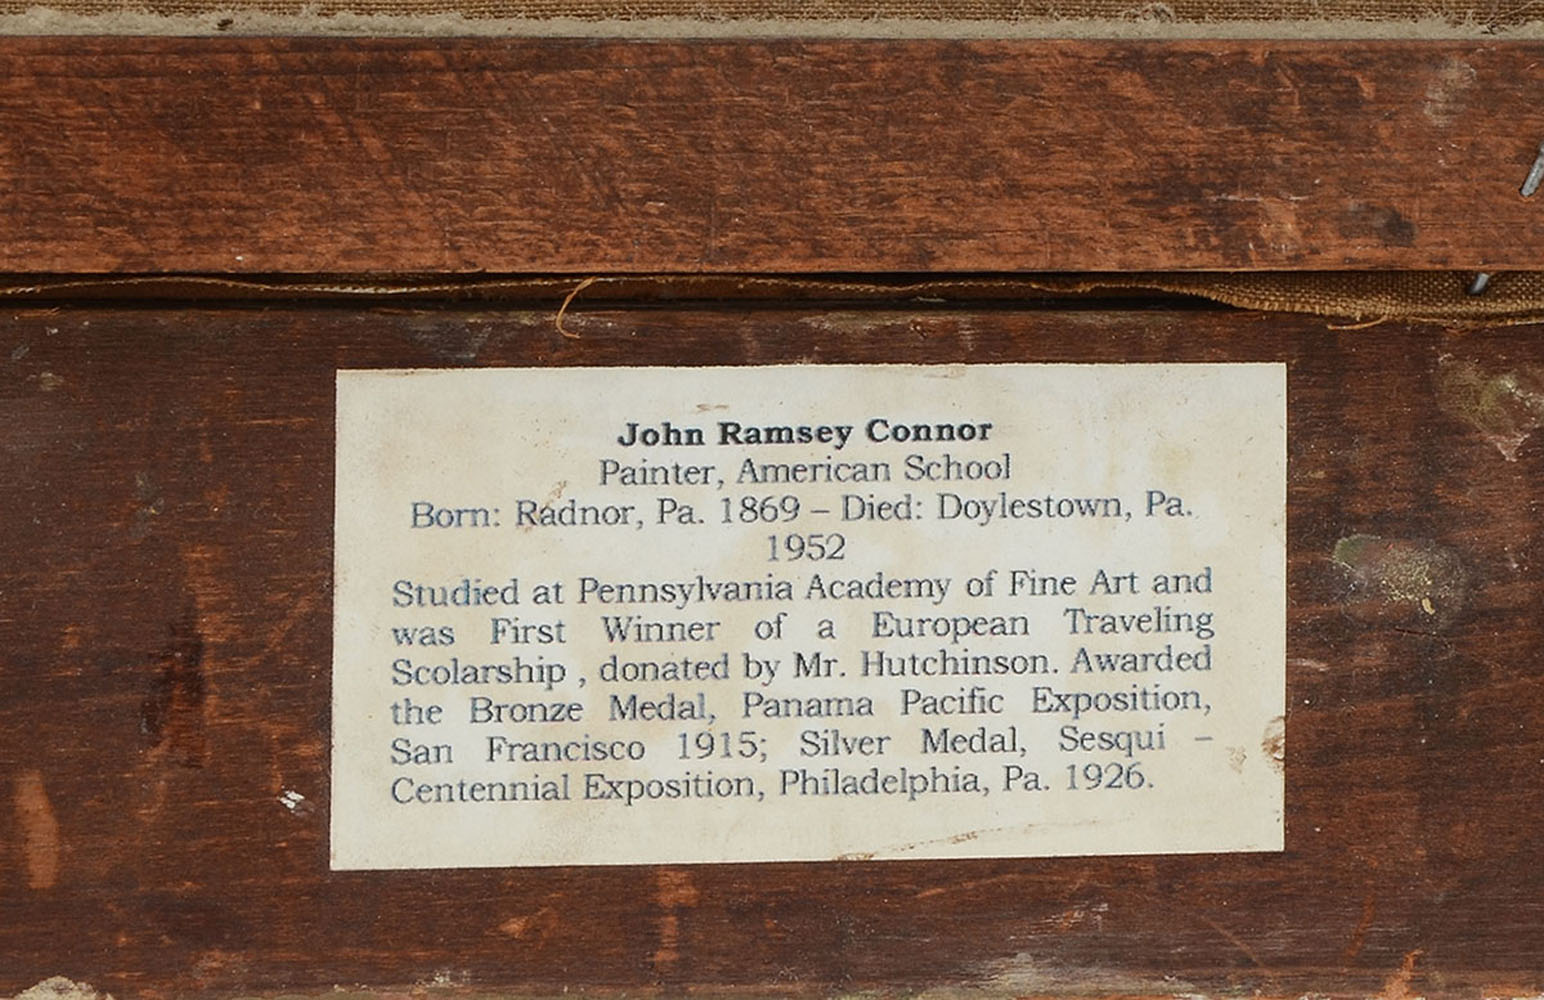 John Ramsey Connor
Painter, American School
Born: Radnor, Pa. 1869 – Died: Doylestown, Pa.
1952
Studied at Pennsylvania Academy of Fine Art and
was First Winner of a European Traveling
Scolarship , donated by Mr. Hutchinson. Awarded
the Bronze Medal, Panama Pacific Exposition,
San Francisco 1915; Silver Medal, Sesqui –
Centennial Exposition, Philadelphia, Pa. 1926.